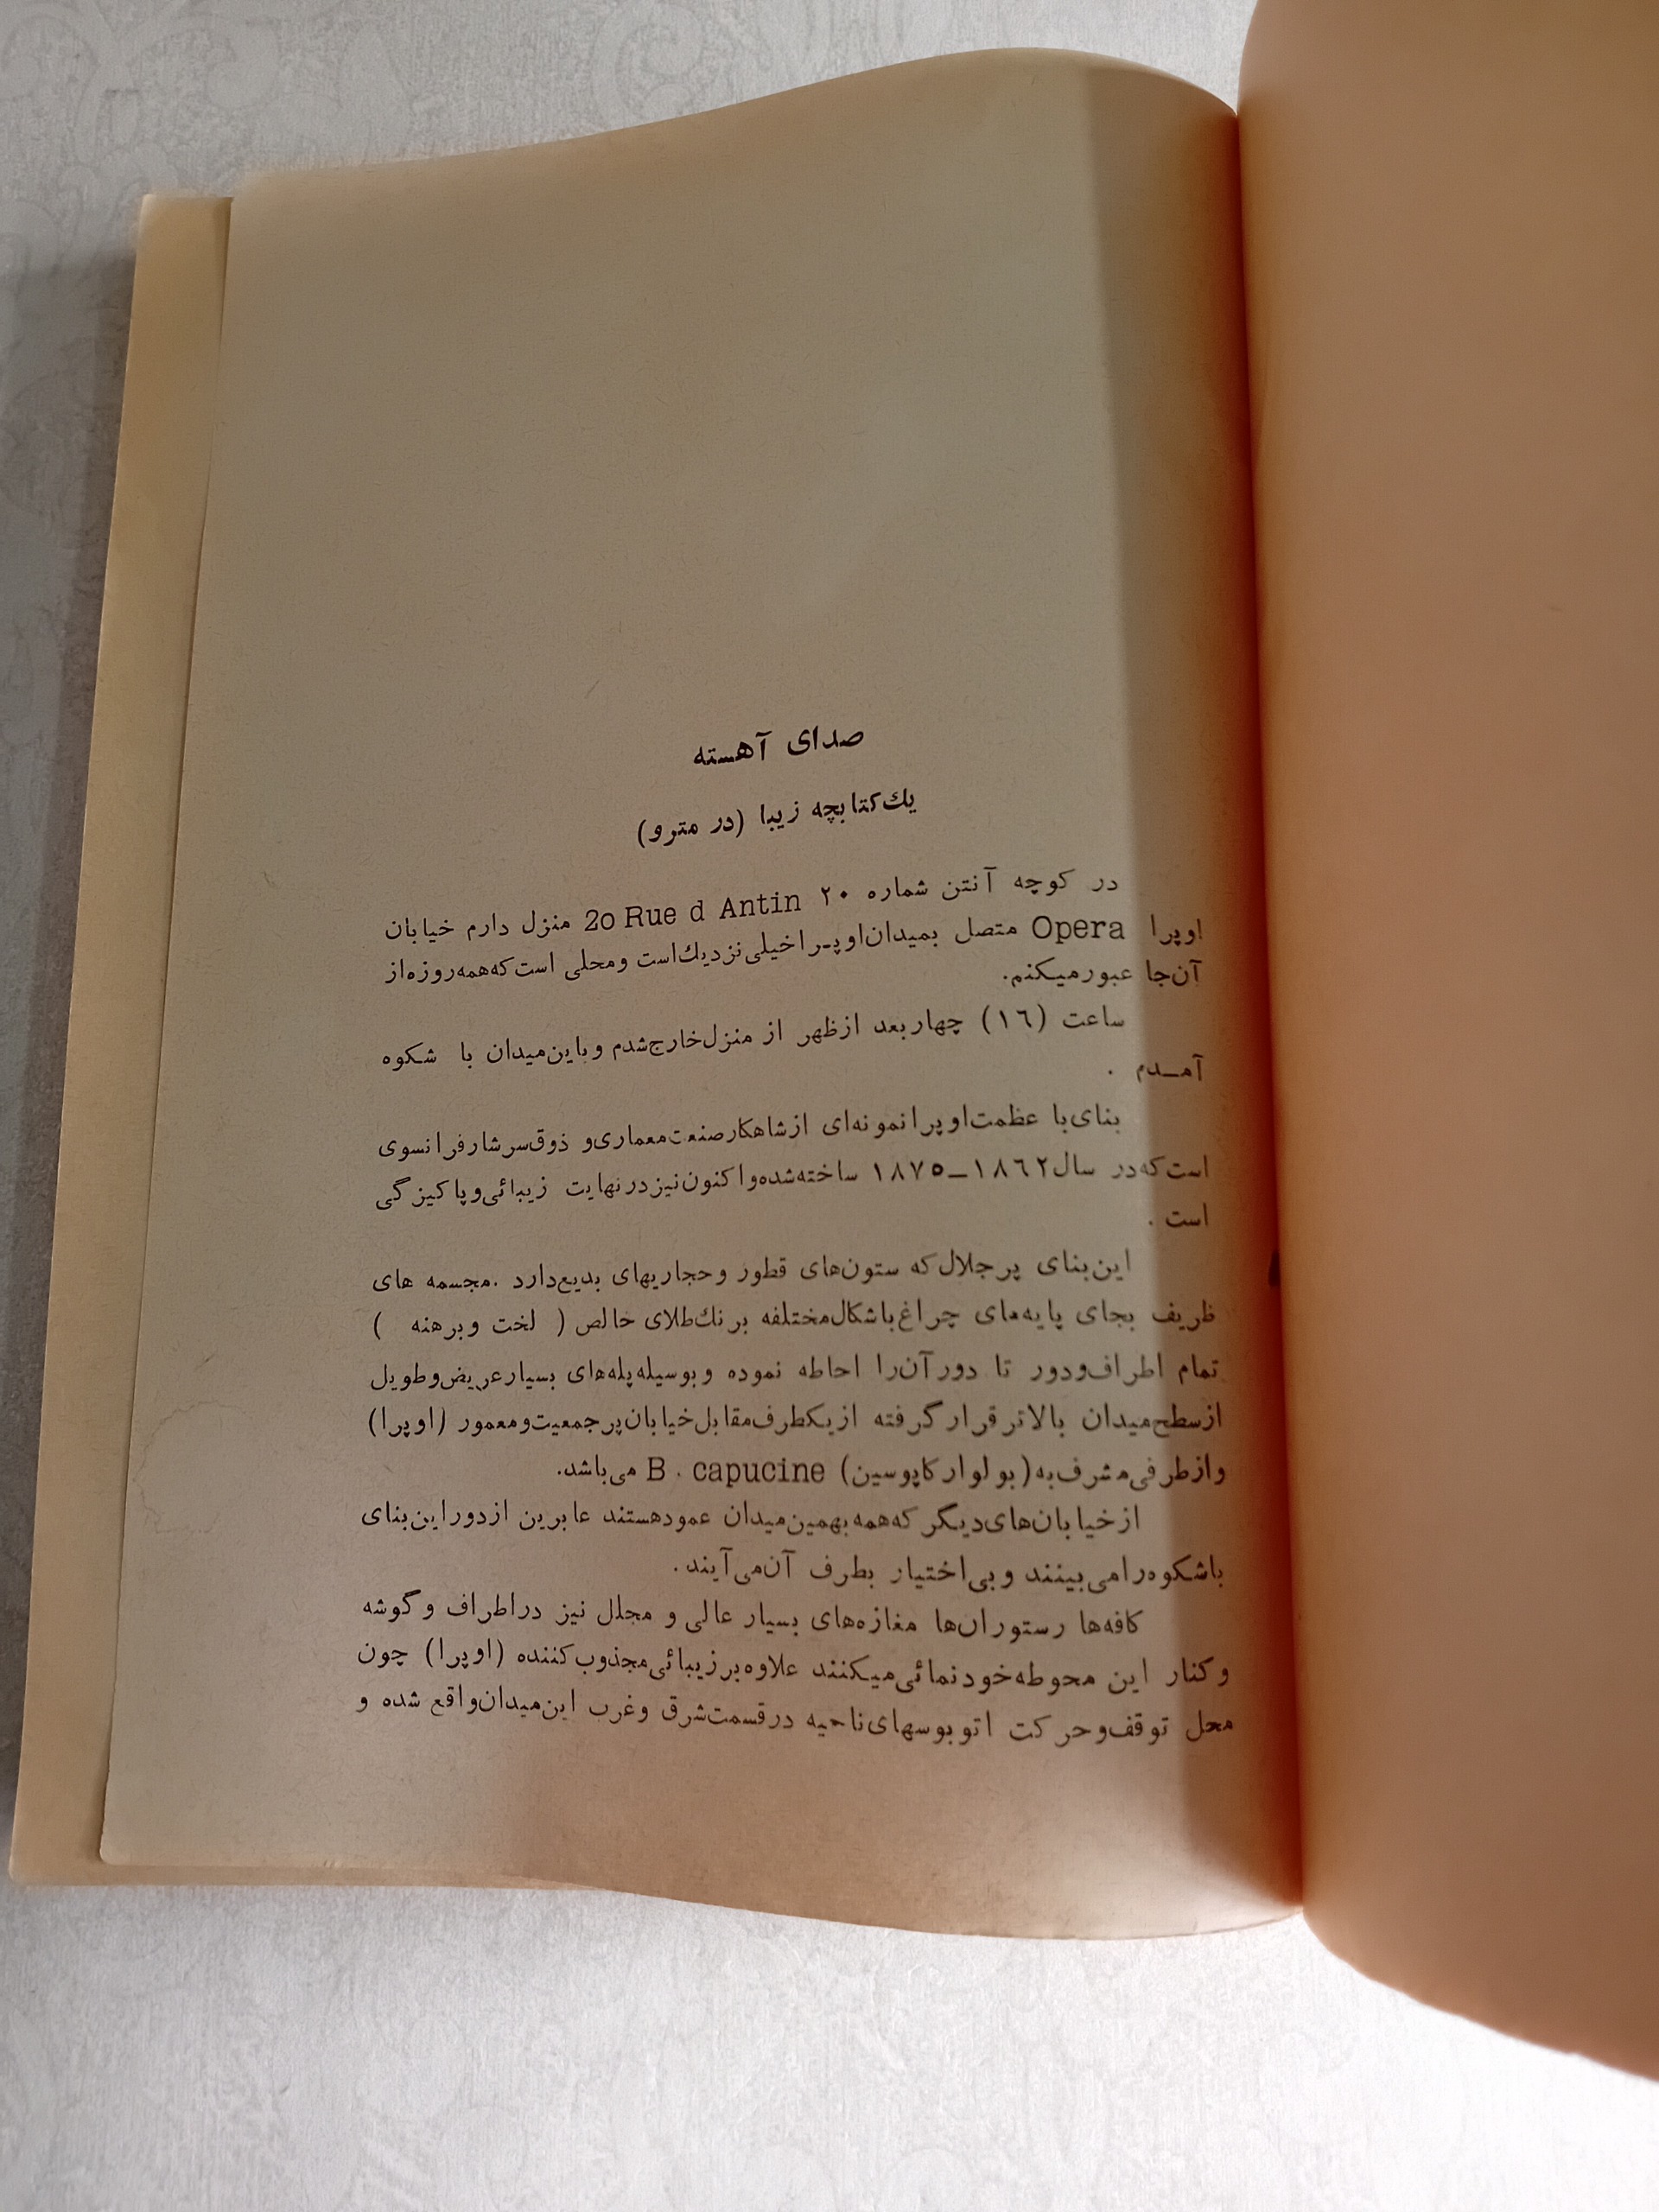 صدای آهسته
یك کتابچه زیبا (در مترو)
در کوچه آنتن شماره ۲۰ 20 Rue d Antin منزل دارم خیابان
اوپرا Opera متصل بمیدان اوپـرا خیلی نزدیك است ومحلی است که همه روزه از
آن‌جا عبورمیکنم.
ساعت (١٦) چهار بعد ازظهر از منزل خارج شدم وباین میدان با شکوه
آمـدم .
بنای با عظمت اوپرا نمونه‌ای ازشاهکار صنعت معماری و ذوق سرشار فرانسوی
است که در سال ١٨٦٢ــ١٨٧٥ ساخته شده واکنون نیز درنهایت زیبائی وپاکیزگی
است .
این بنای پرجلال که ستون‌های قطور وحجاریهای بدیع دارد .مجسمه های
ظریف بجای پایه‌های چراغ باشکال مختلفه برنك طلای خالص ( لخت وبرهنه )
تمام اطراف ودور تا دور آن را احاطه نموده وبوسیله پله‌های بسیار عریض وطویل
از سطح میدان بالاتر قرار گرفته از یکطرف مقابل خیابان پر جمعیت ومعمور (اوپرا)
واز طرفی مشرف به (بولوار کاپوسین) B . capucine می‌باشد.
از خیابان‌های دیگر که همه بهمین میدان عمود هستند عابرین از دور این بنای
باشکوه را می‌بینند وبی‌اختیار بطرف آن می‌آیند .
کافه‌ها رستوران‌ها مغازه‌های بسیار عالی و مجلل نیز در اطراف وگوشه
وکنار این محوطه خودنمائی میکنند علاوه بر زیبائی مجذوب کننده (اوپرا) چون
محل توقف وحرکت اتوبوسهای ناحیه درقسمت شرق وغرب این میدان واقع شده و